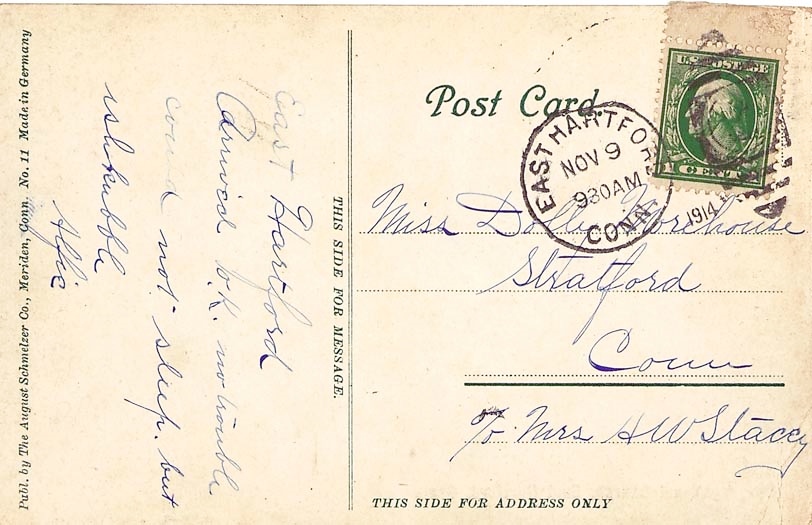 Publ. by The August Schmelzer Co., Meriden, Conn. No. 11 Made in Germany
East Hartford
Arrived O.K. no trouble
coud not sleep. but
ishkabble
Alfie
THIS SIDE FOR MESSAGE.
Post Card.
U.S. POSTAGE
1 CENT 1
EAST HARTFORD
NOV 9
930 AM
1914
CONN.
Miss Dolly Morehouse
Stratford
Conn
c/o Mrs H W Stacey
THIS SIDE FOR ADDRESS ONLY